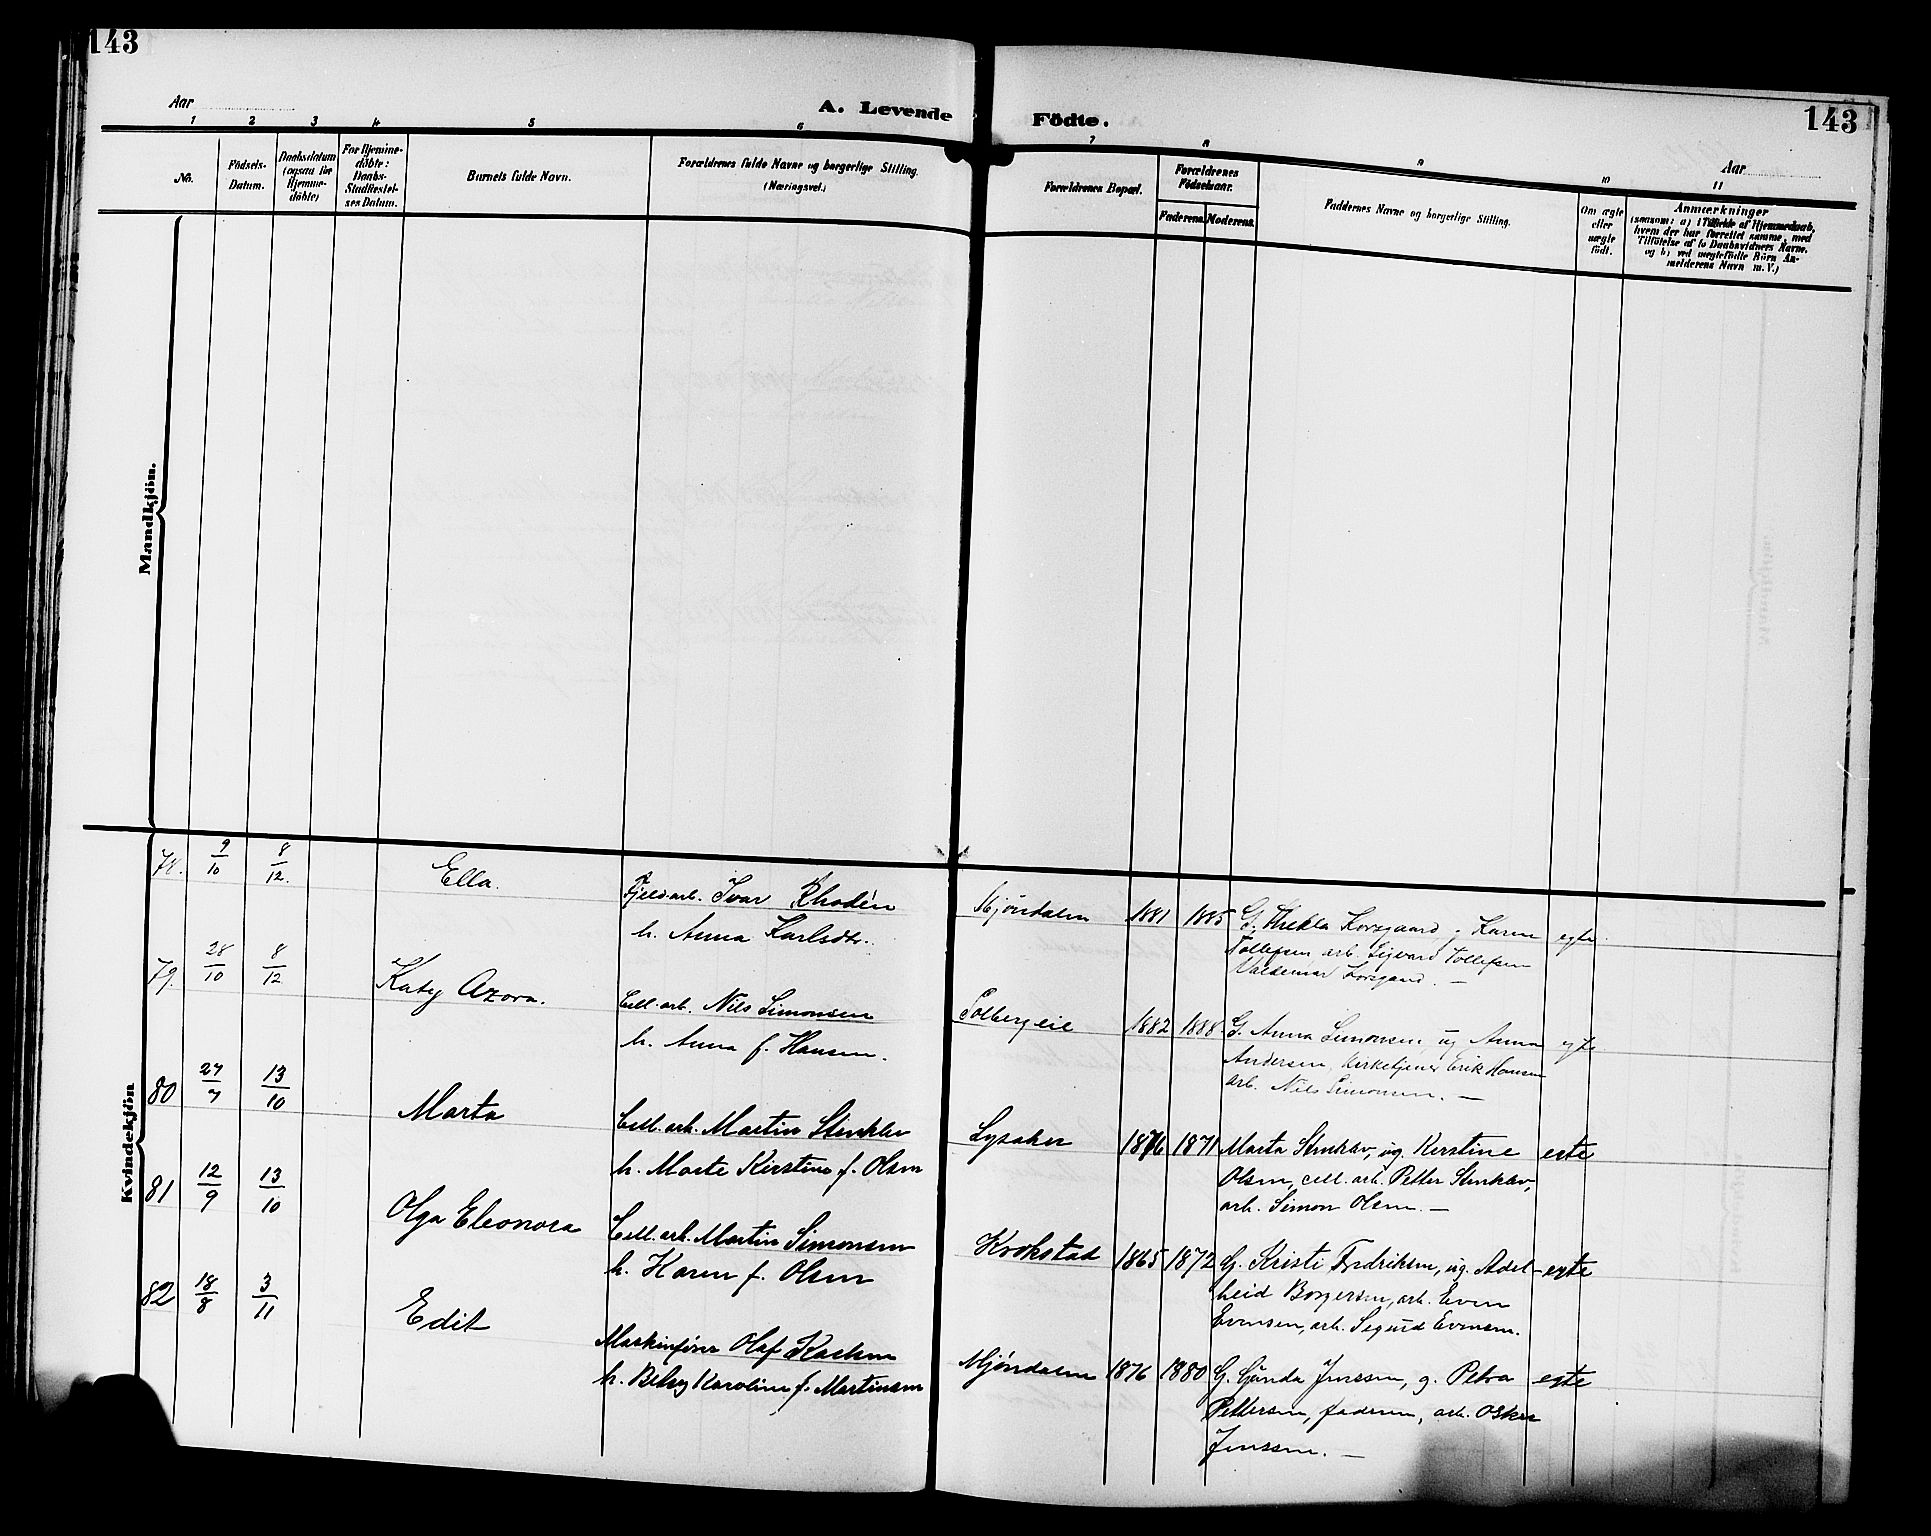 143
143
Aar
A. Levende
Födte.
Aar
1 2 3 4 5 6 7 8 9 10 11
No.
Födsels-
Datum.
Daabsdatum
(ogsaa for
Hjemme-
döbte)
For Hjemme-
döbte:
Daabs-
Stadfæstel-
ses Datum.
Barnets fulde Navn.
Forældrenes fulde Navne og borgerlige Stilling.
(Næringsvei.)
Forældrenes Bopæl.
Forældrenes
Födselsaar.
Faderens. Moderens.
Faddernes Navne og borgerlige Stilling.
Om ægte
eller
uægte
födt.
Anmærkninger
(saasom: a) i Tilfælde af Hjemmedaab,
hvem der har forrettet samme, med
Tilföielse af to Daabsvidners Navne.
og b) ved uægtefödte Börn An-
melderens Navn m. V.)
Mandkjön.
Kvindekjön
78. 9/10 8/12. Ella. Fjeldarb. Ivar Rhodèn
h. Anna Karlsdtr.
Mjöndalen 1881 1885 G. Thekla Korsgaard, g. Karen egte.
Tollefsen arb. Sigvard Tollefsen
Valdemar Korsgaard. —
79. 28/10 8/12 Katy Azora. Cell. arb. Nils Simonsen
h. Anna f. Hansen.
Solbergeie 1882 1888 G. Anna Simonsen, ug Anna egte
Andersen, Kirketjener Erik Hansen
arb. Nils Simonsen. —
80 27/7 13/10 Marta Cell. arb. Martin Stenklev
h. Marte Kirstine f. Olsen
Lysaker 1876 1871 Marta Stenklev, ug. Kerstine egte
Olsen, cell. arb. Petter Stenklev,
arb. Simon Olsen. —
81 12/9 13/10 Olga Eleonora Cell. arb. Martin Simonsen
h. Karen f. Olsen
Krokstad 1865 1872 G. Kristi Fredriksen, ug. Adel- egte
heid Borgersen, arb. Even
Evensen, arb. Sigurd Evensen.
82 18/8 3/11 Edit Maskinfører Olaf
h. Karoline f. Martinsen
Mjöndalen 1876 1880 G. Gunda Jenssen, g. Petra egte
Pettersen, faderen, arb. Oskar
Jenssen. —